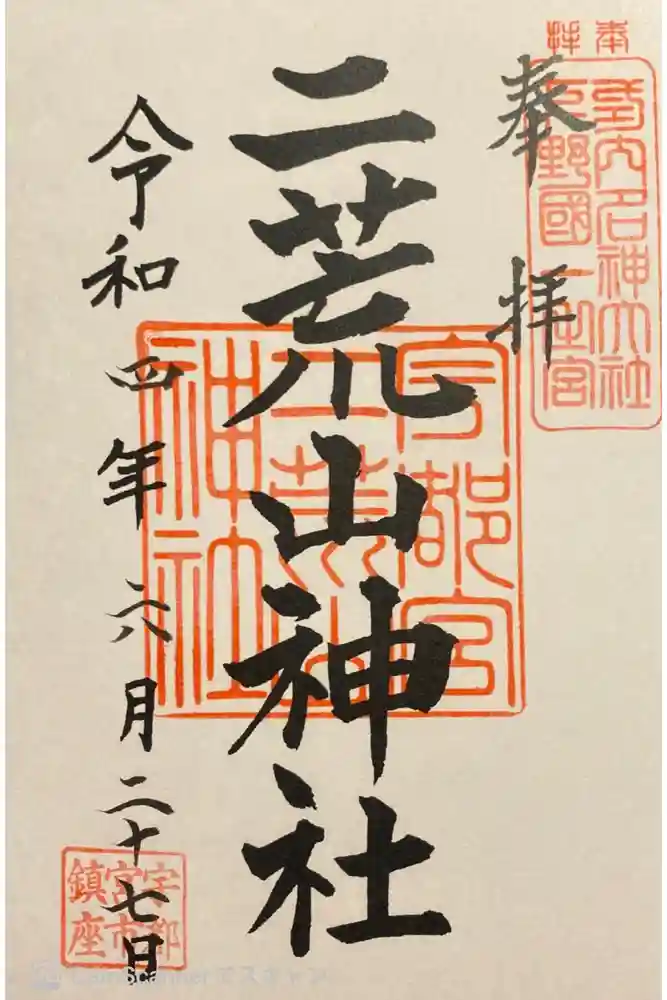 奉拝
奉拝
式内名神大社
下野國一之宮
二荒山神社
宇都宮
二荒山
神社
令和四年六月二十七日
宇都
宮市
鎮座
CamScannerでスキャン